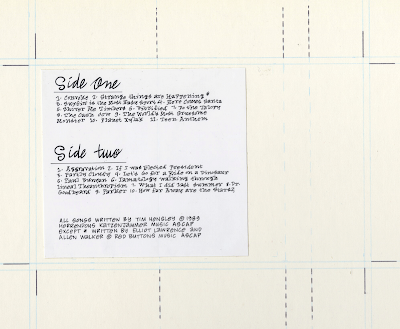 Side one
1. Cowpies 2. Strange things are Happening *
3. Surfin' is the Most Rada Sport 4. Here Comes Santa
5. Shiver Me Timbers 6. Petrified 7. In the Talery
8. The Cuca dora 9. The World's Most Gruesome
Monster 10. Planet Xylak 11. Teen Anthem
Side two
1. Aggravation 2. If I was Elected President
3. Partly Cloudy 4. Let's Go for a Ride on a Dinosaur
5. Paul Bunyan 6. Fantastique walking through
7. What I did last Summer 8. Dr.
Goodbeard 9. Parker 10. How Far Away are the Stars?
ALL SONGS WRITTEN BY TIM HENSLEY © 1989
HORRENDOUS KATZENJAMMER MUSIC ASCAP
EXCEPT * WRITTEN BY ELLIOT LAWRENCE AND
ALLEN WALKER © RED BUTTONS MUSIC ASCAP